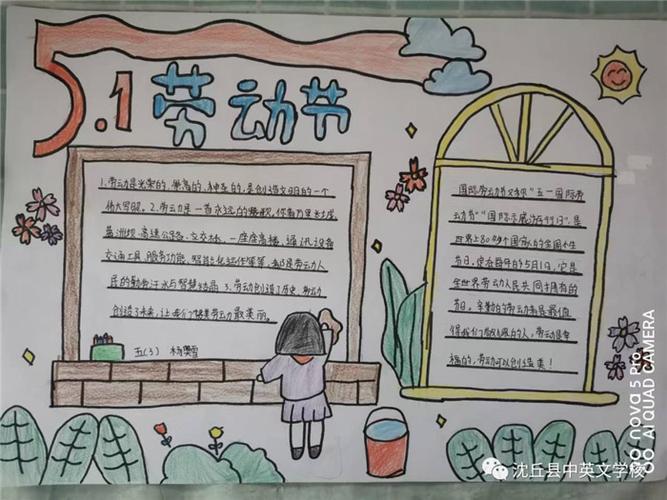 5.1 劳动节
1.劳动是光荣的、崇高的、神圣的,是创造文明的一个
伟大
2.劳动是一首永远的
高速公路、立交桥、一座座高楼、通讯设备
交通工具、服务功能、智能化运作等等,都是劳动人
民的勤劳汗水与智慧结晶 3.劳动创造了历史,劳动
创造了未来,让我们
劳动最美丽。
五(3)
国际劳动节又称“五一国际劳
动节”“国际示威游行日”,是
世界上80多个国家的全国性
节日,定在每年的5月1日,它是
全世界劳动人民共同拥有的
节日。辛勤的劳动者是最值
得我们
的人,劳动是幸
福的,劳动可以创造美!
nova 5 Pro
AI QUAD CAMERA
沈丘县中英文学校